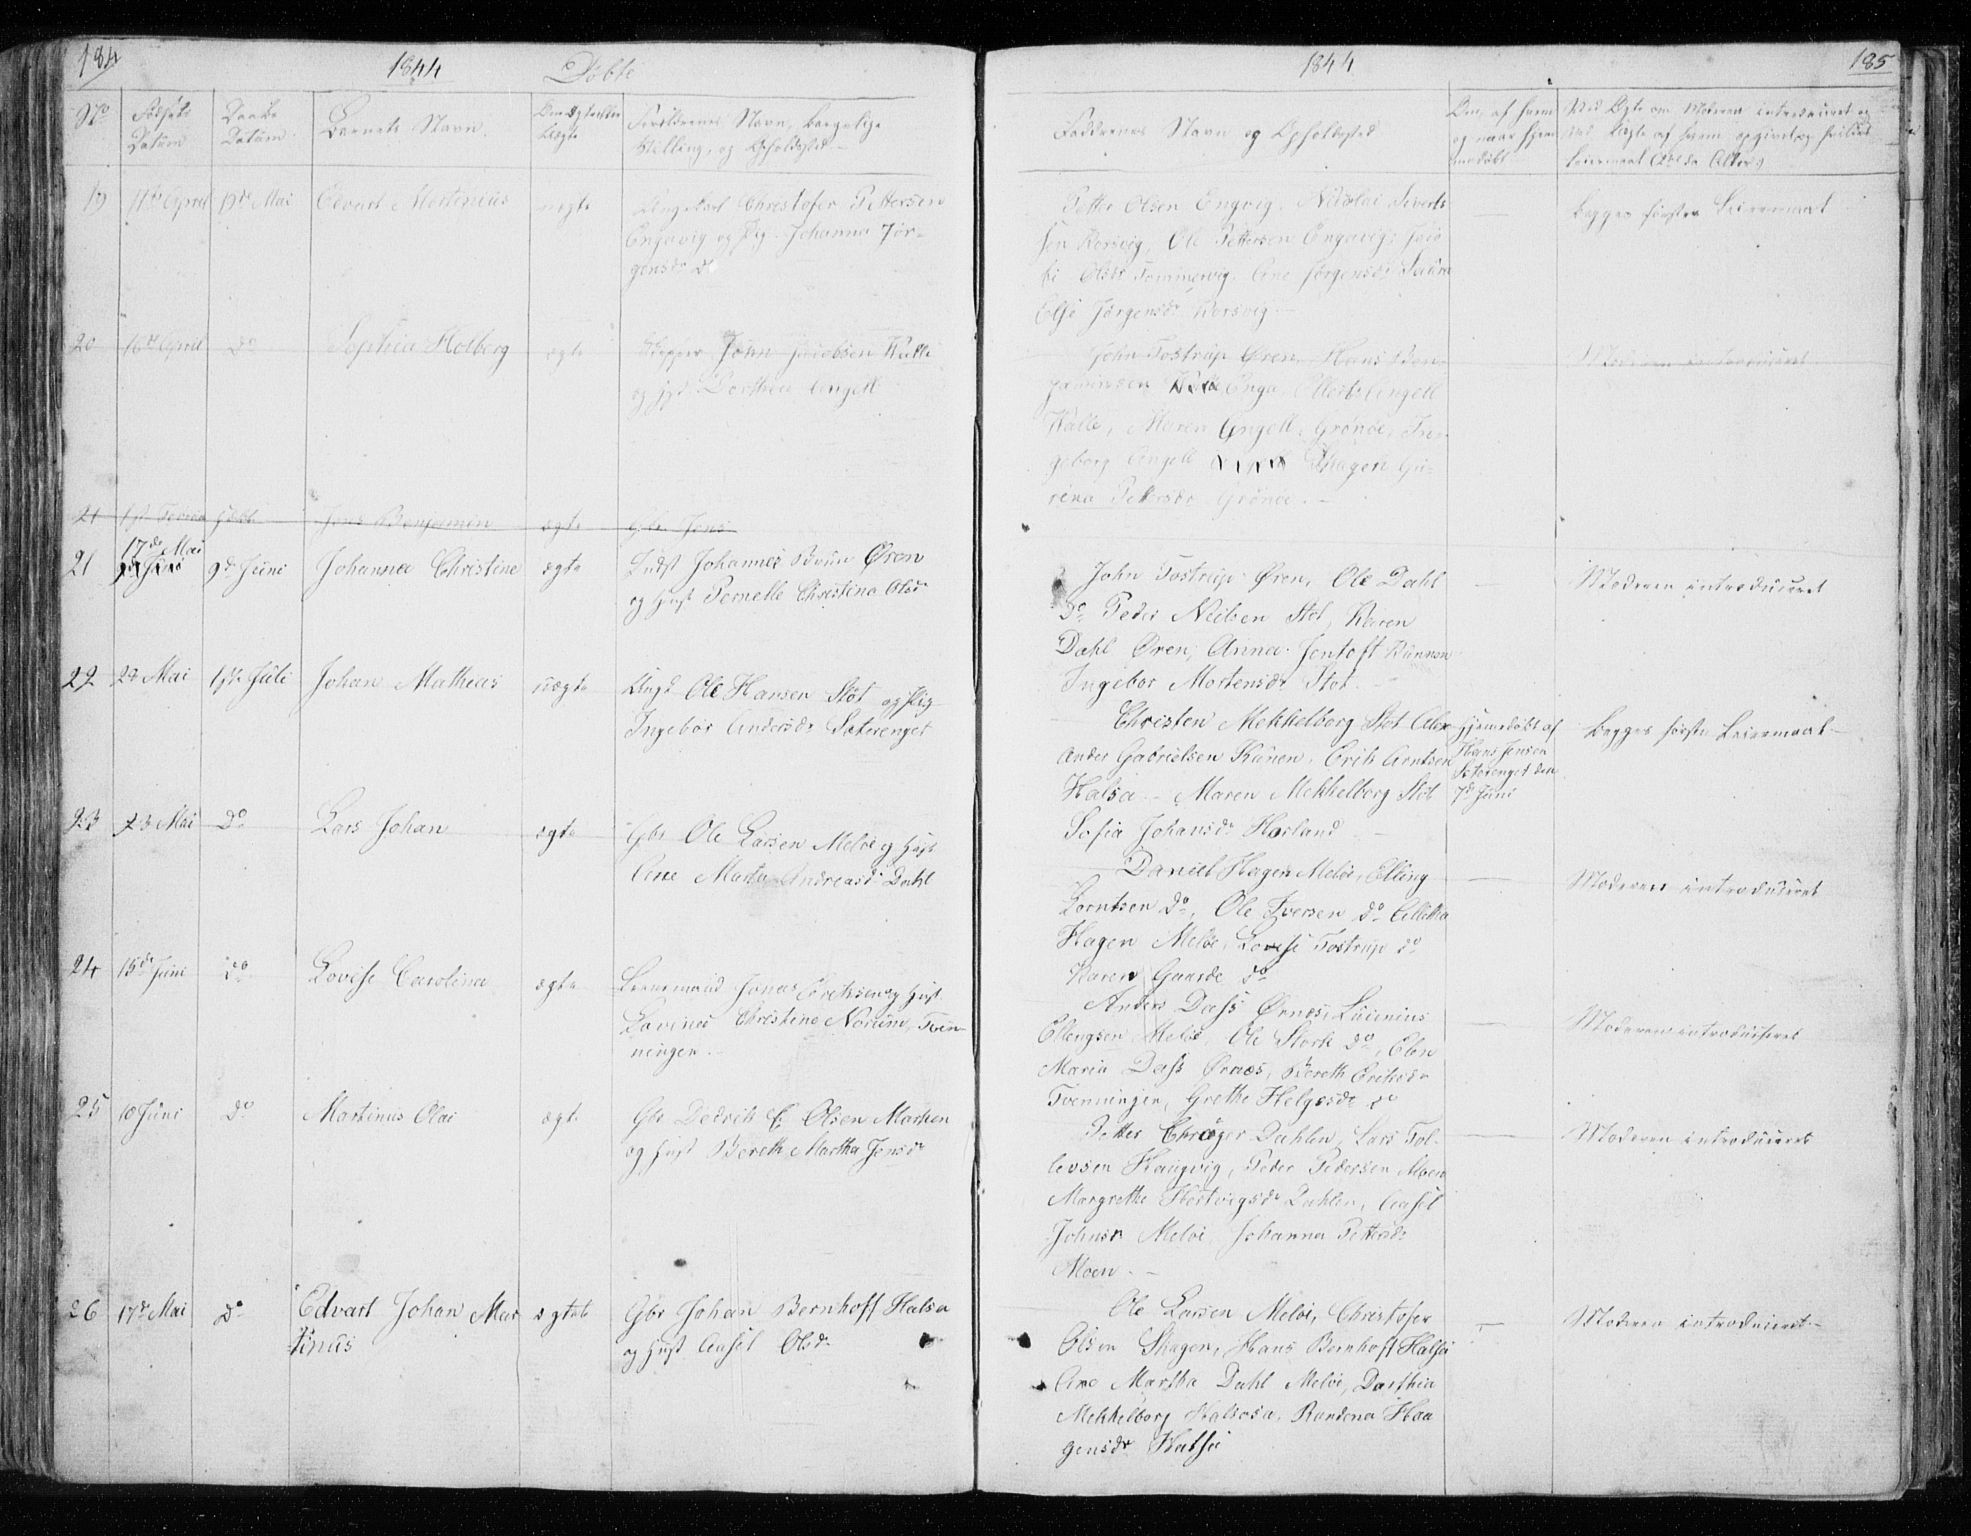 184
1844
Døbte
No
Fødsels Datum
Daabs Datum
Barnets Navn.
Om Ægte eller Uægte
Forældrenes Navn, borgerlige Stilling, og Opholdssted
19
19de Mai
Edvart Mortinius
uægte
Ungekarl Christofer Pettersen
Engavig og Pig. Johanna Jør-
gensdr do
20
16de April
do
Sophia Holberg
ægte
Skipper John Jacobsen Valle
og hst Dorthea Angell
21
Jens Benjamin
ægte
Gbr Jens
21
17de Mai
9de Juni
Johanna Christine
ægte
Indst Johannes Bruun Øren
og Hust Pernelle Christina Olsdr
22
22 Mai
1ste Juli
Johan Mathias
uægte
Ungk Ole Hansen Støt og Pig
Ingebor Andersdr Sæterenget
23
23 Mai
Do
Lars Johan
ægte
Gbr Ole Larsen Meløe og Hust
Ane Marta Andreasdr Dahl
24
15de Juni
do
Lovise Carolina
ægte
Leiermand Jonas Eriksen og Hust
Lovinea Christine Norum, Tven-
ningen
25
10 Juni
do
Martinus Olai
ægte
Gbr Dedrik E. Olsen Marken
og Hust Bereth Martha Jensdr
26
17de Mai
Do
Edvart Johan Mar
tinus
ægte
Gbr Johan Bernhoff Halsa
og Hust Aasel Olsdr
1844
185
Faddrenes Navn og Opholdssted
Om, af hvem og naar hjemmedøbt
Petter Olsen Engavig, Nicolai Siverts
sen Korsvig, Ole Pettersen Engavig, Jaco
bi Olsdr Tommervig, Ane Jørgensdr
Else Jørgensdr Korsvig
Begges første Leiermaal
John Tostrup Øren, Hans Ben-
jaminsen Enga, Angell
Valle, Maren Angell, Grønøe, In-
geborg Angell Skagen Gu-
rina Pettersdr Grønøe.
Moderen introduceret
John Tostrup Øren, Ole Dahl
Do Peder Nielsen Støt, Karen
Dahl Øren, Anna Jentoft Kunnen
Ingebor Mortensdr Støt
Moderen introduceret
Christen Mekkelborg Støt Alex
ander Gabrielsen Kunen, Erik Arntsen
Halsa - Maren Mekkelborg Støt
Sofia Johansdr Horland
Hjemmedøbt af
Hans Jensen
Sæterenget den
7de Juni
Begges første Leiermaal
Daniel Hagen Meløe, Elling
Lorntsen Do, Ole Iversen do
Hagen Meløe, Lovise Tostrup do
Karen Gaarde do
Moderen introduceret
Anders Dass Ørnes, Lucinius
Ellengsen Meløe, Ole Stork do, Elen
Maria Dass Ørnes, Bereth Eriksdr
Tvenningen, Grethe Helgesdr do
Moderen introduceret
Petter Chrøger Dahlen, Lars Tol-
levsen Haugvig, Peder Pedersen Moen
Margrethe Hartvigsdr Dahlen, Aasel
Johnsdr Meløe Johanna Pettersdr
Moen
Moderen introduceret
Ole Larsen Meløe, Christofer
Olsen Skagen, Hans Bernhoff Halsa
Ane Martha Dahl Meløe, Dorthea
Mekkelborg Halsosa, Randena Haa
gensdr Halsa
Moderen introduceret